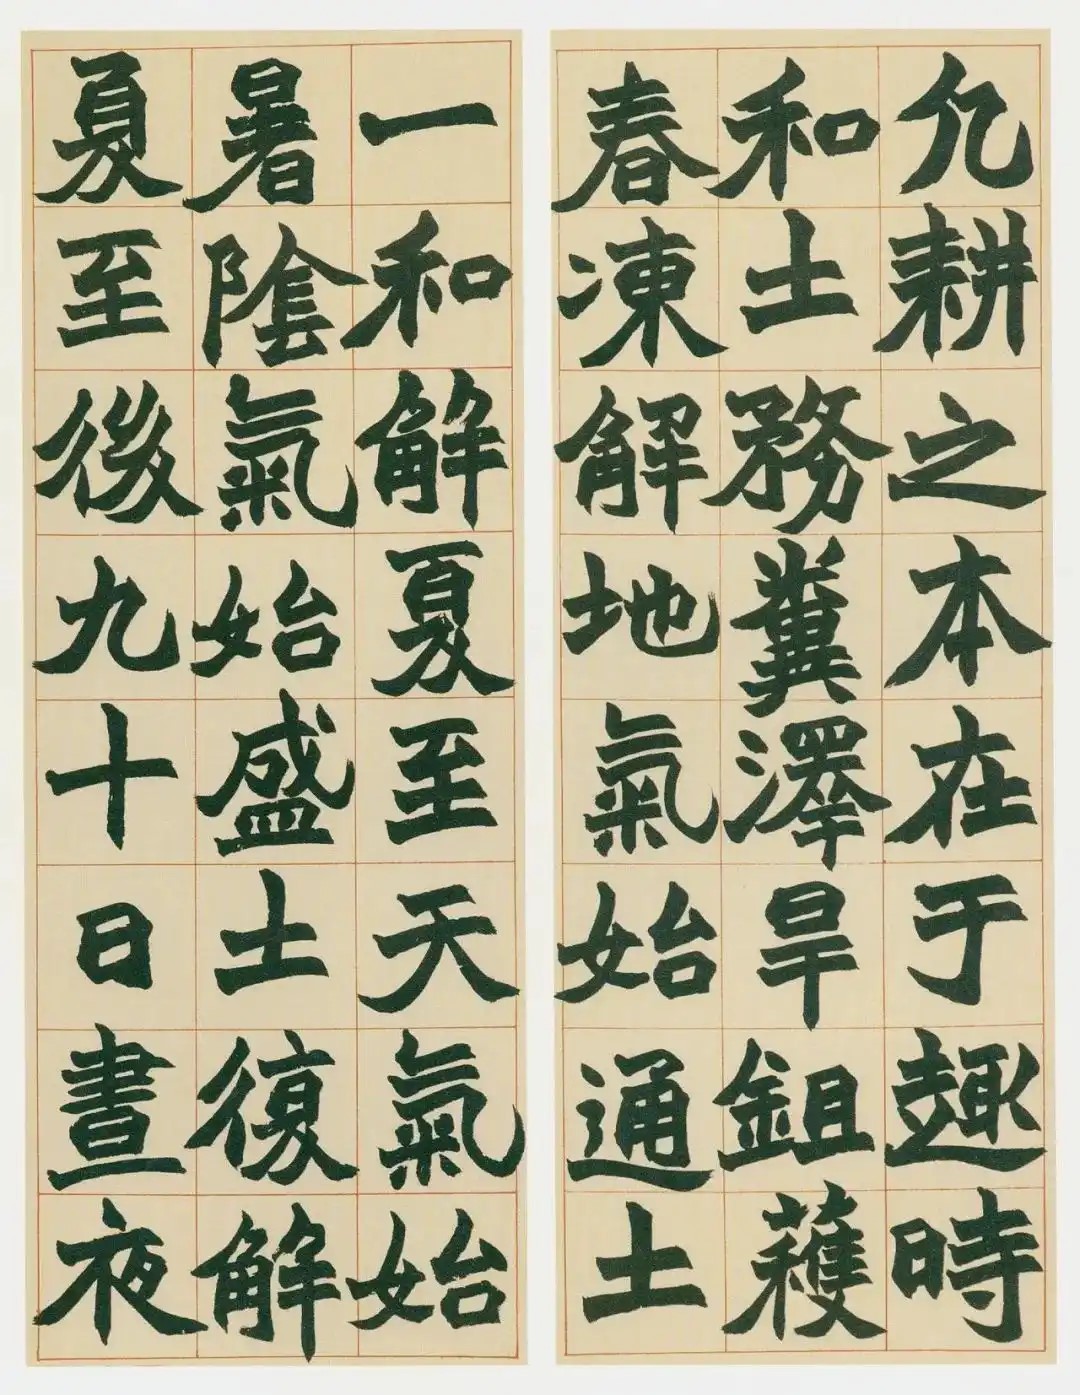 凣耕之本在于趣時
和土務糞澤旱鉏穫
春凍解地氣始通土
一和解夏至天氣始
暑陰氣始盛土復解
夏至後九十日晝夜